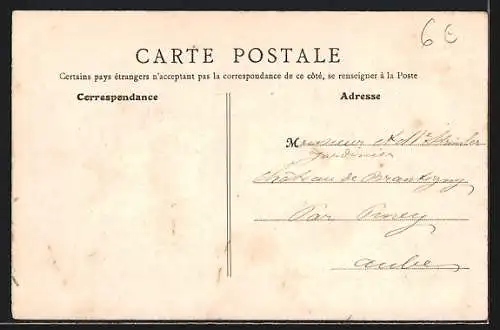 6€
CARTE POSTALE
Certains pays étrangers n'acceptant pas la correspondance de ce côté, se renseigner à la Poste
Correspondance
Adresse
Monsieur et Mme
Jardinier
Château de Brantigny
Par Piney
Aube